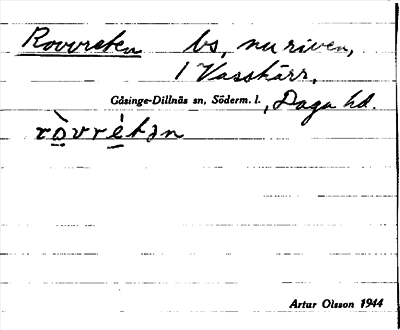 Rovvreten bs, nu riven,
i Vasskärr,
Gåsinge-Dillnäs sn, Söderm. l., Daga hd.
rò̲vre̲̍tən
Artur Olsson 1944